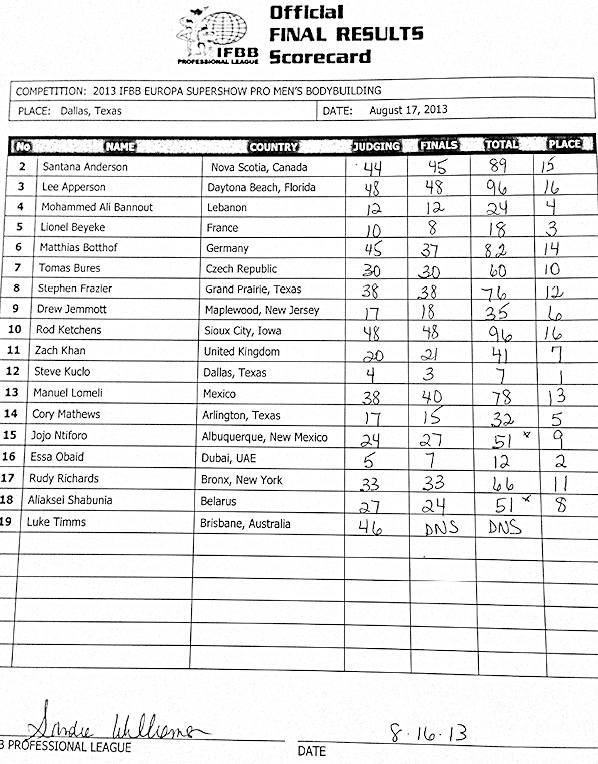 Official
FINAL RESULTS
Scorecard
IFBB
PROFESSIONAL LEAGUE
COMPETITION: 2013 IFBB EUROPA SUPERSHOW PRO MEN'S BODYBUILDING
PLACE: Dallas, Texas DATE: August 17, 2013
No NAME COUNTRY JUDGING FINALS TOTAL PLACE
2 Santana Anderson Nova Scotia, Canada 44 45 89 15
3 Lee Apperson Daytona Beach, Florida 48 48 96 16
4 Mohammed Ali Bannout Lebanon 12 12 24 4
5 Lionel Beyeke France 10 8 18 3
6 Matthias Botthof Germany 45 37 82 14
7 Tomas Bures Czech Republic 30 30 60 10
8 Stephen Frazier Grand Prairie, Texas 38 38 76 12
9 Drew Jemmott Maplewood, New Jersey 17 18 35 6
10 Rod Ketchens Sioux City, Iowa 48 48 96 16
11 Zach Khan United Kingdom 20 21 41 7
12 Steve Kuclo Dallas, Texas 4 3 7 1
13 Manuel Lomeli Mexico 38 40 78 13
14 Cory Mathews Arlington, Texas 17 15 32 5
15 Jojo Ntiforo Albuquerque, New Mexico 24 27 51 * 9
16 Essa Obaid Dubai, UAE 5 7 12 2
17 Rudy Richards Bronx, New York 33 33 66 11
18 Aliaksei Shabunia Belarus 27 24 51 * 8
19 Luke Timms Brisbane, Australia 46 DNS DNS
Sandie Williamson 8-16-13
B PROFESSIONAL LEAGUE DATE